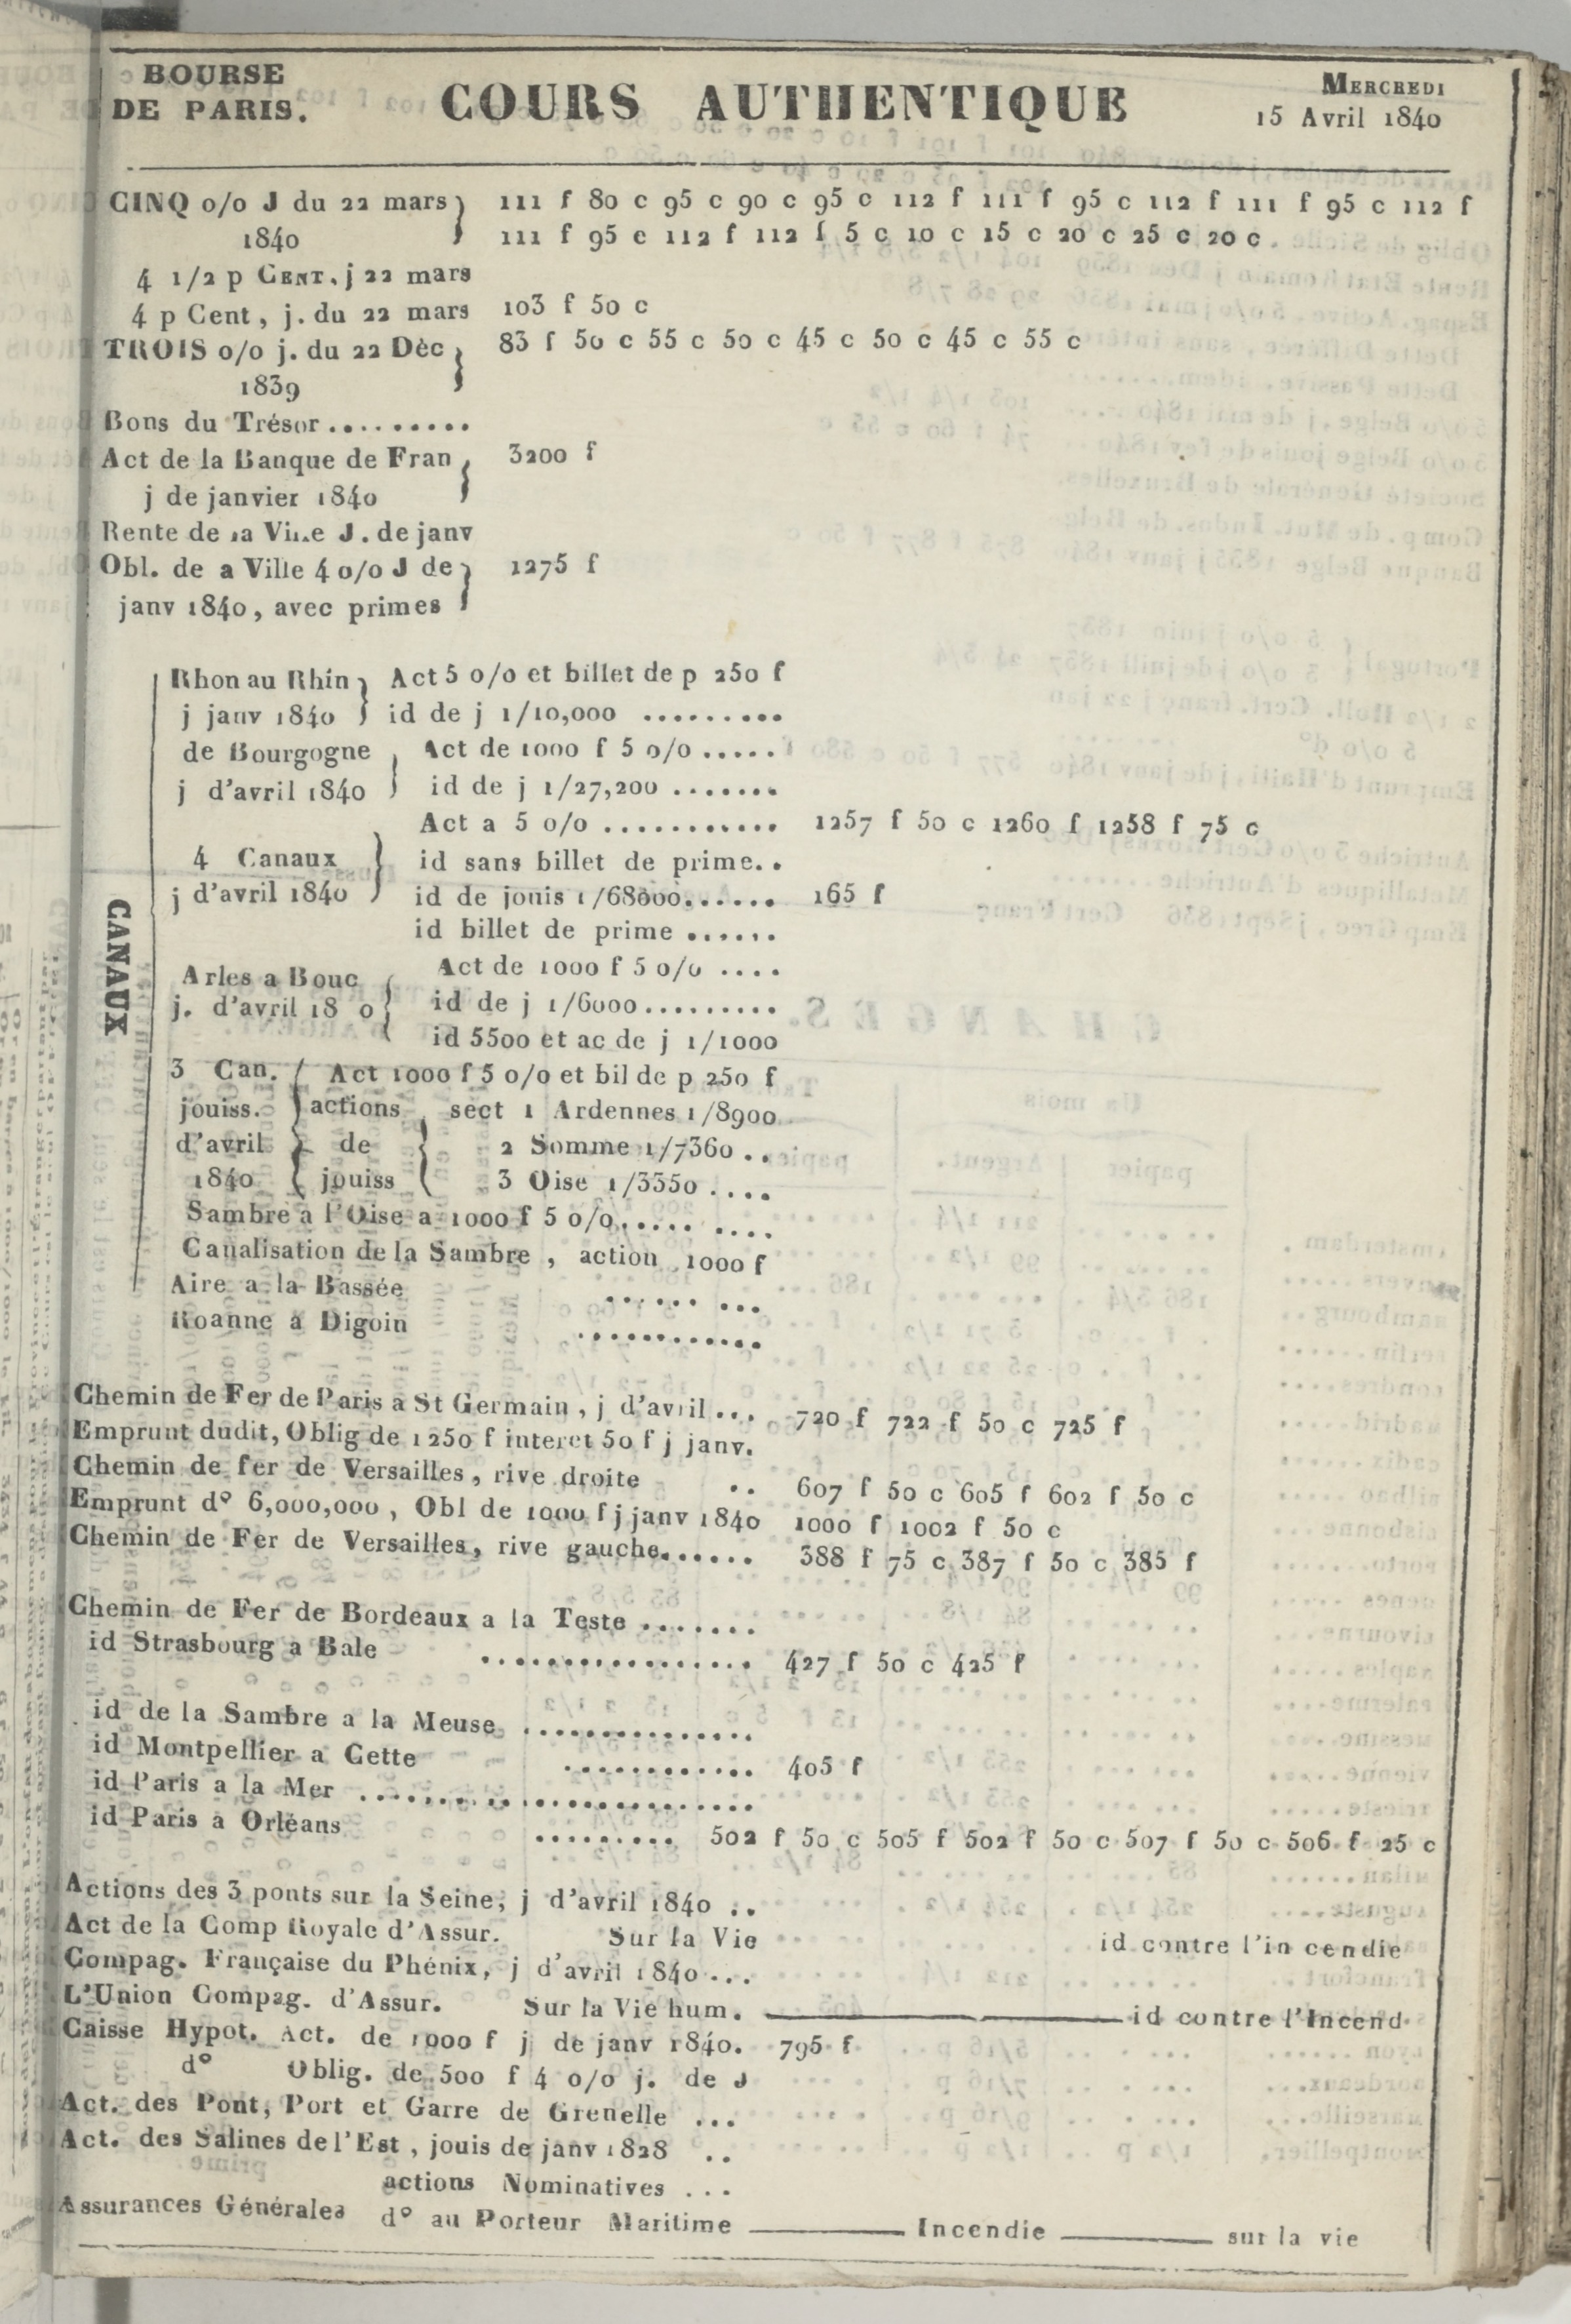 BOURSE
DE PARIS.
COURS AUTHENTIQUE
MERCREDI
15 Avril 1840
CINQ o/o J du 22 mars 111 f 80 c 95 c 90 c 95 c 112 f 111 f 95 c 112 f 111 f 95 c 112 f
1840 111 f 95 c 112 f 112 f 5 c 10 c 15 c 20 c 25 c 20 c.
4 1/2 p CENT. j 22 mars
4 p Cent, j. du 22 mars 103 f 50 c
TROIS o/o j. du 22 Déc 83 f 50 c 55 c 50 c 45 c 50 c 45 c 55 c
1839
Bons du Trésor.........
Act de la Banque de Fran 3200 f
j de janvier 1840
Rente de la Ville J. de janv
Obl. de a Ville 4 o/o J de 1275 f
janv 1840, avec primes
CANAUX
Rhon au Rhin Act 5 o/o et billet de p 250 f
j janv 1840 id de j 1/10,000 .........
de Bourgogne Act de 1000 f 5 o/o .....
j d'avril 1840 id de j 1/27,200 .......
Act a 5 o/o ........... 1257 f 50 c 1260 f 1258 f 75 c
4 Canaux id sans billet de prime..
j d'avril 1840 id de jouis 1/68000...... 165 f
id billet de prime ......
Arles a Bouc Act de 1000 f 5 o/o ....
j. d'avril 18 0 id de j 1/6000.........
id 5500 et ac de j 1/1000
3 Can. Act 1000 f 5 o/o et bil de p 250 f
jouiss. actions sect 1 Ardennes 1/8900
d'avril de 2 Somme 1/7360 ..
1840 jouiss 3 Oise 1/3350 ....
Sambre a l'Oise a 1000 f 5 o/o..... ....
Canalisation de la Sambre, action 1000 f
Aire a la Bassée ...... ...
Roanne à Digoin ............
Chemin de Fer de Paris a St Germain, j d'avril... 720 f 722 f 50 c 725 f
Emprunt dudit, Oblig de 1250 f interet 50 f j janv.
Chemin de fer de Versailles, rive droite .. 607 f 50 c 605 f 602 f 50 c
Emprunt d° 6,000,000, Obl de 1000 f j janv 1840 1000 f 1002 f 50 c
Chemin de Fer de Versailles, rive gauche...... 388 f 75 c 387 f 50 c 385 f
Chemin de Fer de Bordeaux a la Teste .......
id Strasbourg a Bale ................. 427 f 50 c 425 f
id de la Sambre a la Meuse ..............
id Montpellier a Cette ............ 405 f
id Paris a la Mer .............................
id Paris a Orléans ......... 502 f 50 c 505 f 502 f 50 c 507 f 50 c 506 f 25 c
Actions des 3 ponts sur la Seine, j d'avril 1840 ..
Act de la Comp Royale d'Assur. Sur la Vie id contre l'in cendie
Compag. Française du Phénix, j d'avril 1840...
L'Union Compag. d'Assur. Sur la Vie hum. id contre l'Incend
Caisse Hypot. Act. de 1000 f j de janv 1840. 795 f
d° Oblig. de 500 f 4 o/o j. de J
Act. des Pont, Port et Garre de Grenelle ...
Act. des Salines de l'Est, jouis de janv 1828 ..
actions Nominatives ...
Assurances Générales d° au Porteur Maritime Incendie sur la vie